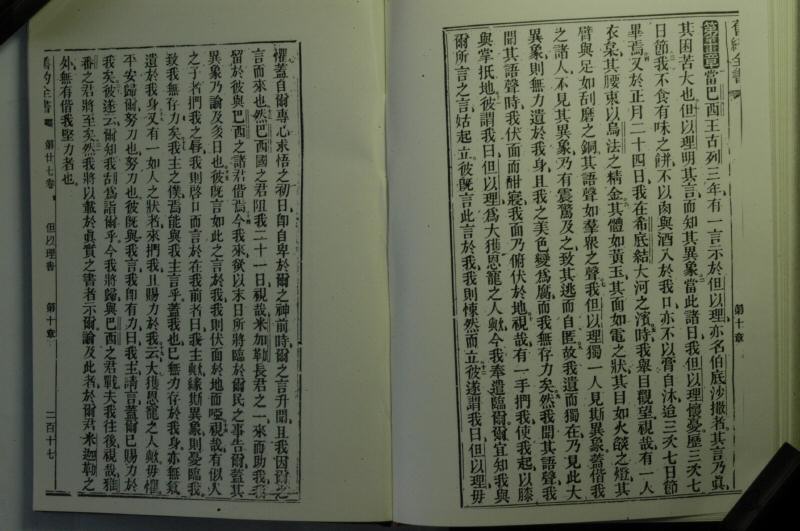 舊約全書
第十章
第十章當巴西王古列三年有一言示於但以理亦名伯底沙撒者其言乃眞
其困苦大也但以理明其言而知其異象當此諸日我但以理懷憂歷三次七
日節我不食有味之餅不以肉與酒入於我口亦不以膏自沐迨三次七日節
畢焉又於正月二十四日我在希底結大河之濱時我舉目觀望視哉有一人
衣枲其腰束以烏法之精金其體如黃玉其面如電之狀其目如火燄之燈其
臂與足如刮磨之銅其語聲如羣衆之聲我但以理獨一人見斯異象蓋偕我
之諸人不見其異象乃有震驚及之致其逃而自匿故我遺而獨在乃見此大
異象則無力遺於我身且我之美色變爲腐而我無存力矣然我聞其語聲我
聞其語聲時我伏面而酣寢我面乃俯伏於地視哉有一手捫我使我起以膝
與掌抵地彼謂我曰但以理爲大獲恩寵之人歟今我奉遣臨爾爾宜知我與
爾所言之言姑起立彼旣言此言於我我則悚然而立彼遂謂我曰但以理毋
懼蓋自爾專心求悟之初日卽自卑於爾之神前時爾之言升聞且我因爾之
言而來也然巴西國之君阻我二十一日視哉米加勒長君之一來而助我我
留於彼與巴西之諸君偕焉今我來欲以末日所將臨於爾民之事告爾蓋其
異象乃論及多日也彼旣言如此之言於我我則伏面於地而啞視哉有似人
之子者捫我之脣我則啓口而言於在我前者曰我主歟緣斯異象則憂臨我
致我無存力矣我主之僕焉能與我主言乎蓋我也已無力存於我身亦無氣
遺於我身又有一如人之狀者來捫我且賜力於我云大獲恩寵之人歟毋懼
平安歸爾努力也努力也彼旣與我言我卽有力曰我主請言蓋爾已賜力於
我矣彼遂云爾知我胡爲詣爾乎今我將歸與巴西之君戰夫我往後視哉雅
番之君將至矣然我將以載於眞實之書者示爾論及此者於爾君米迦勒之
外無有偕我堅力者也
舊約全書
第廿七卷
但以理書
第十章
二百十七